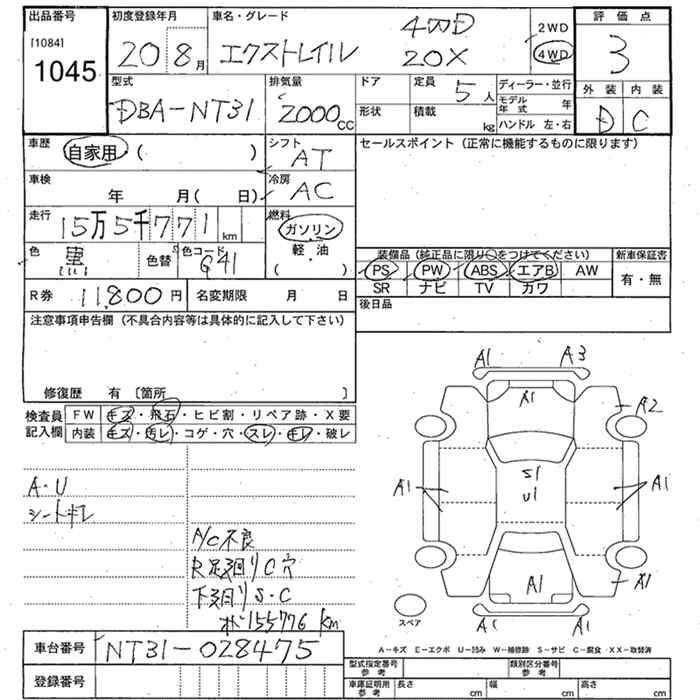 出品番号 初度登録年月 車名・グレード 評価点
[1084] 1045 20 8月 エクストレイル 4WD 20X 2WD 4WD 3
型式 排気量 ドア 定員 ディーラー・並行 外装 内装
DBA-NT31 2000cc 5人 モデル年式 年 D C
形状 積載 kg ハンドル 左・右
車歴 自家用 ( ) シフト AT セールスポイント (正常に機能するものに限ります)
車検 年 月( 日) 冷房 AC
走行 15万5千771km 燃料 ガソリン・軽・油 ( )
色 黒 色替 色コード G41 装備品 (純正品に限り○をつけてください) 新車保証書
PS PW ABS エアB AW 有・無
SR ナビ TV カワ
R券 11,800円 名変期限 月 日 後日品
注意事項申告欄 (不具合内容等は具体的に記入して下さい)
修復歴 有 〔箇所 〕
検査員 FW キズ・飛石・ヒビ割・リペア跡・X要
記入欄 内装 キズ・汚レ・コゲ・穴・スレ・キレ・破レ
A・U
シートギレ
A/C不良
R足廻りC穴
下廻りS・C
155776 km
A1 A3
A1
A2
S1
U1
A1 A1
A1
A1
A1 A1
スペア
A-キズ E-エクボ U-凹み W-補修跡 S-サビ C-腐食 XX-取替済
車台番号 NT31-028475
型式指定番号 参考 類別区分番号 参考
登録番号 車庫証明用 参考 長さ cm 幅 cm 高さ cm